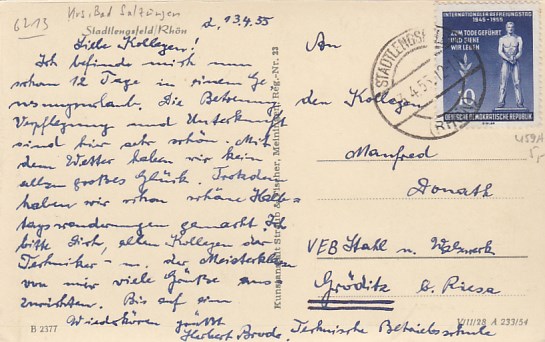 6213
Krs. Bad Salzungen
d. 13.4.55
Stadtlengsfeld/Rhön
Liebe Kollegen!
Ich befinde mich nun
schon 12 Tage in einem Ge
nesungsurlaub. Die Betreuung
Verpflegung und Unterkunft
sind hier sehr schön. Mit
dem Wetter haben wir kein
allzu großes Glück. Trotzdem
haben wir schon schöne Halb-
tagswanderungen gemacht. Ich
bitte Dich, allen Kollegen der
Techniker- u. der Meisterklassen
von mir viele Grüße aus
zurichten. Bis auf ein
Wiederhören grüßt
Herbert Brode.
B 2377
Kunstanstalt Straub & Fischer, Meiningen Reg.-Nr. 23
INTERNATIONALER BEFREIUNGSTAG
1945-1955
ZUM TODE GEFÜHRT
UND SIEHE
WIR LEBEN
10
DEUTSCHE DEMOKRATISCHE REPUBLIK
STADTLENGSFELD
(RHÖN)
459A
5,-
An
den Kollegen
Manfred
Donath
VEB Stahl u. Walzwerk
Gröditz b. Riesa
Technische Betriebsschule
VIII/28 A 233/54